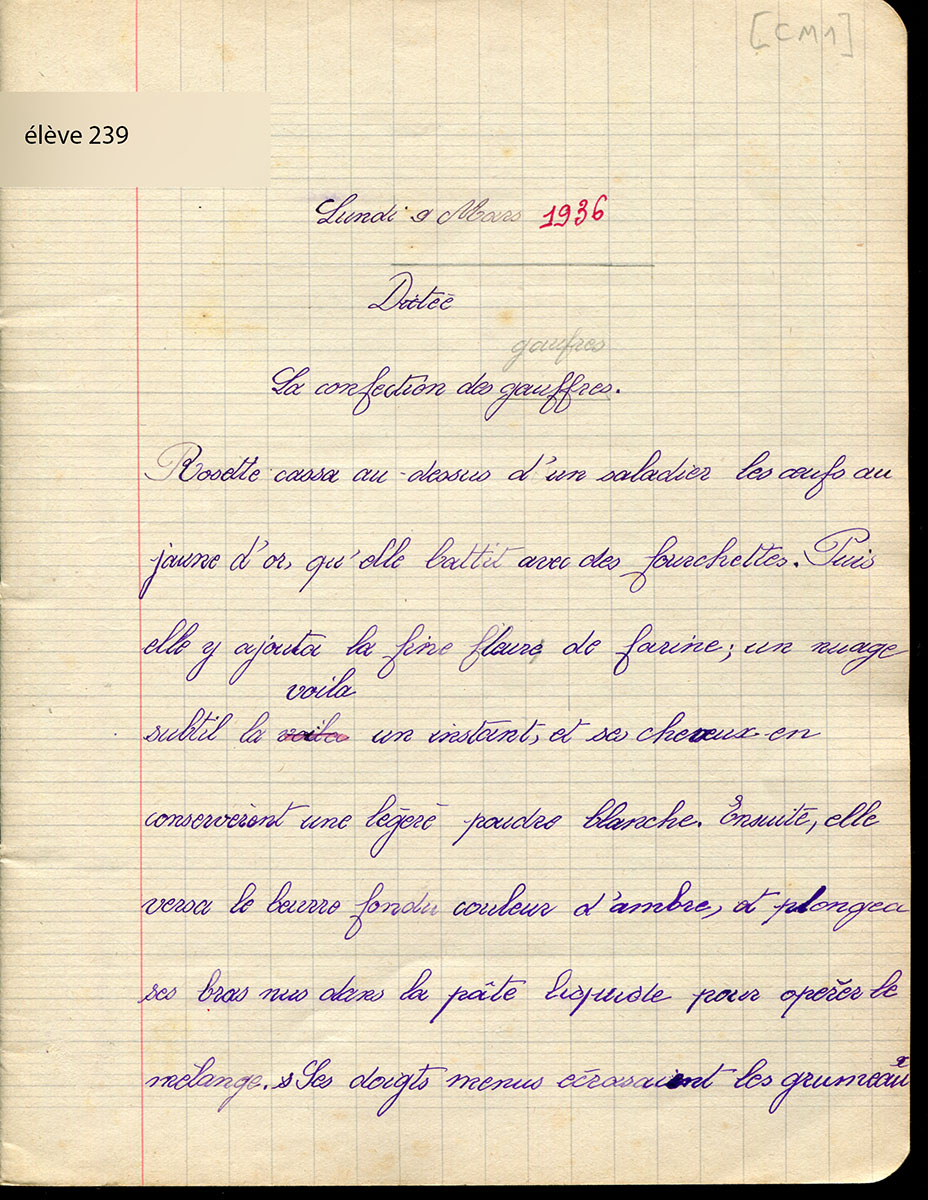 [CM1]
élève 239
Lundi 9 Mars 1936
Dictée
gaufres
La confection des gauffres.
Rosette cassa au-dessus d'un saladier les œufs au
jaune d'or, qu'elle battit avec des fourchettes. Puis
elle y ajouta la fine fleure de farine; un nuage
voila
subtil la voila un instant, et ses cheveux en
conservèront une légèré poudre blanche. Ensuite, elle
versa le beurre fondu couleur d'ambre, et plongea
ses bras nus dans la pâte liquide pour opérer le
mélange. Ses doigts menus écrasaient les grumeaux